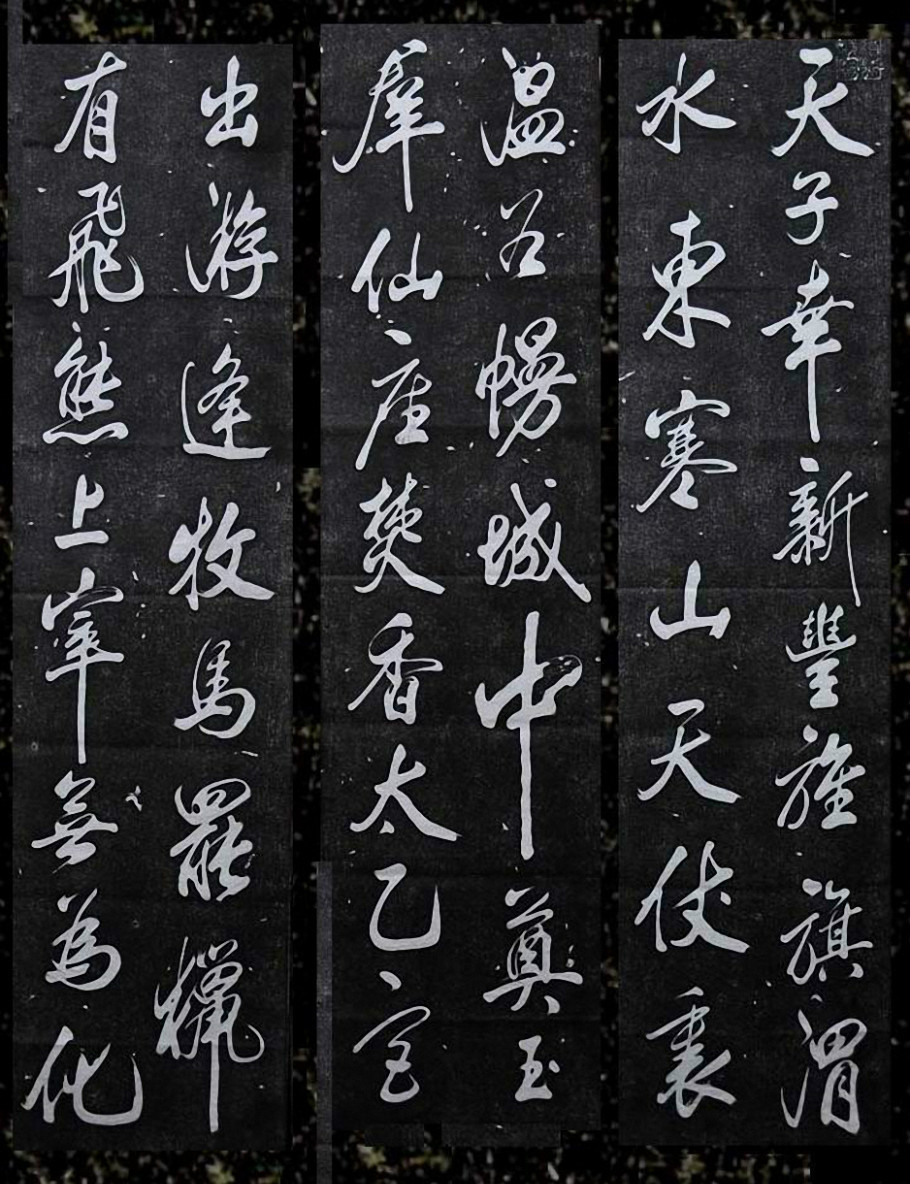 天子幸新豐旌旗渭
水東寒山天仗裏
溫谷幔城中奠玉
羣仙座焚香太乙宮
出游逢牧馬罷獵
有飛熊上宰無為化